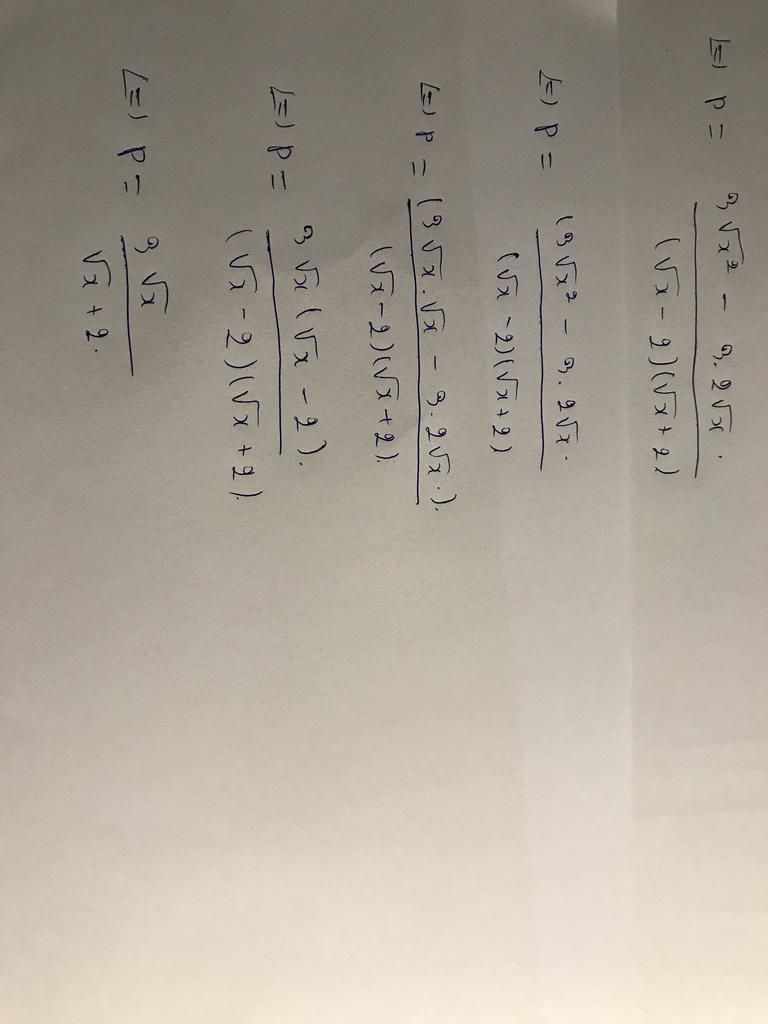 <=> P = (3√x² - 3.2√x.) / ((√x - 2)(√x + 2))
<=> P = ((3√x² - 3.2√x.) / ((√x - 2)(√x + 2))
<=> P = ((3√x.√x - 3.2√x.).) / ((√x - 2)(√x + 2).)
<=> P = (3√x(√x - 2).) / ((√x - 2)(√x + 2).)
<=> P = (3√x) / (√x + 2.)